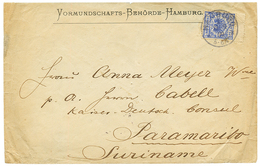 VORMUNDSCHAFTS-BEHÖRDE-HAMBURG.
Frau Anna Meyer Wwe
p. a. Herrn Cabell
Kaiser. Deutsch. Consul
Paramaribo
Suriname